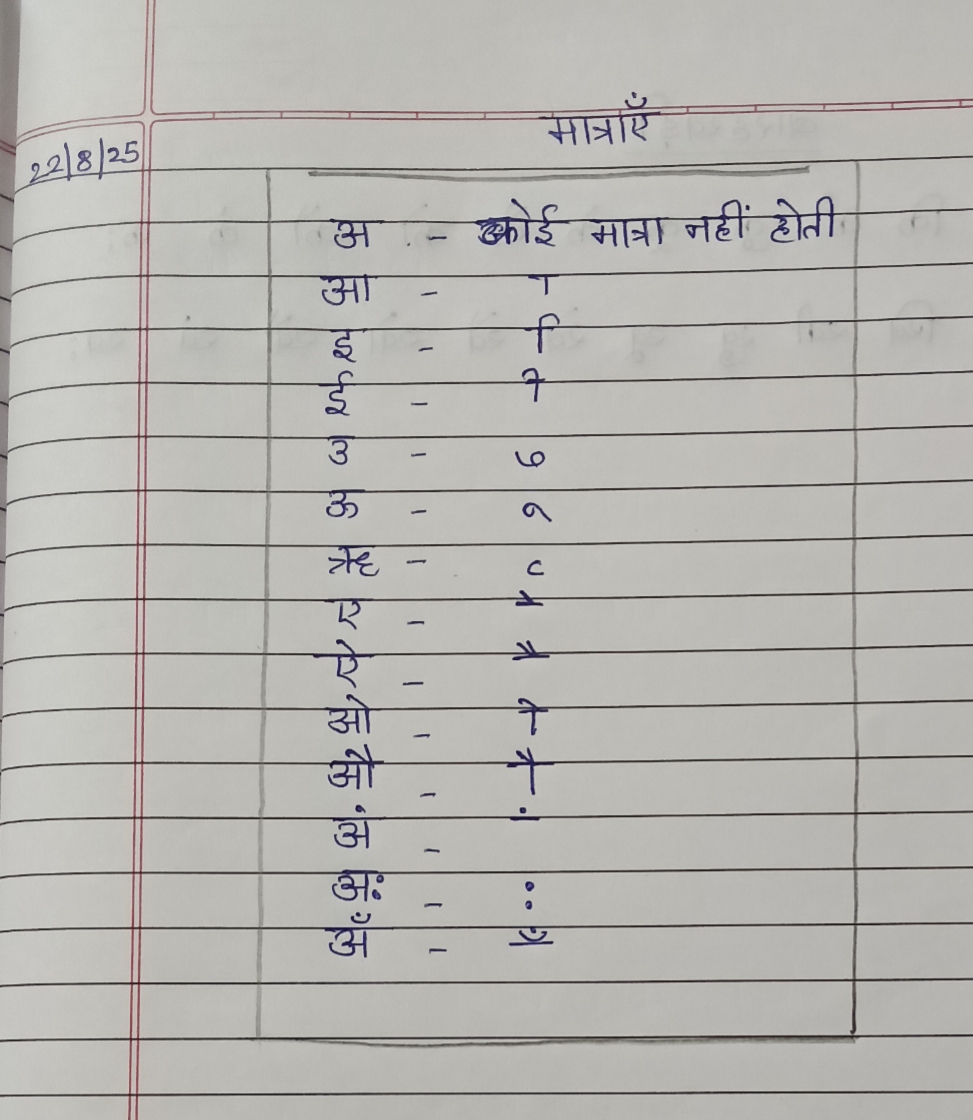 मात्राएँ
22/8/25
अ - कोई मात्रा नहीं होती
आ - ा
इ - ि
ई - ी
उ - ु
ऊ - ू
ऋ - ृ
ए - े
ऐ - ै
ओ - ो
औ - ौ
अं - ं
अः - ः
अँ - ँ